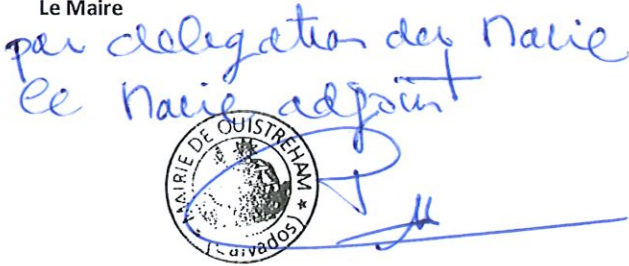 Le Maire
par delegation du Maire
le Maire adjoint
MAIRIE DE OUISTREHAM
(Calvados)